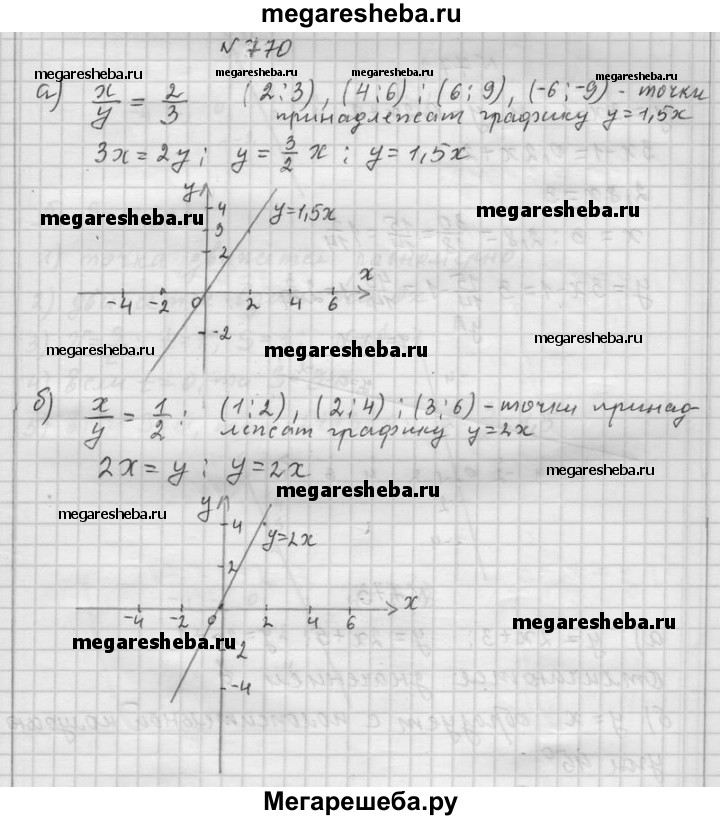 megaresheba.ru
N 770
megaresheba.ru megaresheba.ru megaresheba.ru megaresheba.ru
а) x/y = 2/3 (2;3), (4;6); (6;9), (-6;-9) - точки
принадлежат графику y=1,5x
3x=2y; y=3/2 x; y=1,5x
y
4 y=1,5x
megaresheba.ru megaresheba.ru
3
2
x
-4 -2 0 2 4 6
-2
megaresheba.ru megaresheba.ru megaresheba.ru
б) x/y = 1/2; (1;2), (2;4); (3;6) - точки принад-
лежат графику y=2x
2x=y; y=2x
megaresheba.ru
megaresheba.ru
megaresheba.ru
y
4 y=2x
2
-4 -2 0 2 4 6 x
megaresheba.ru
megaresheba.ru
-2
-4
Мегарешеба.ру